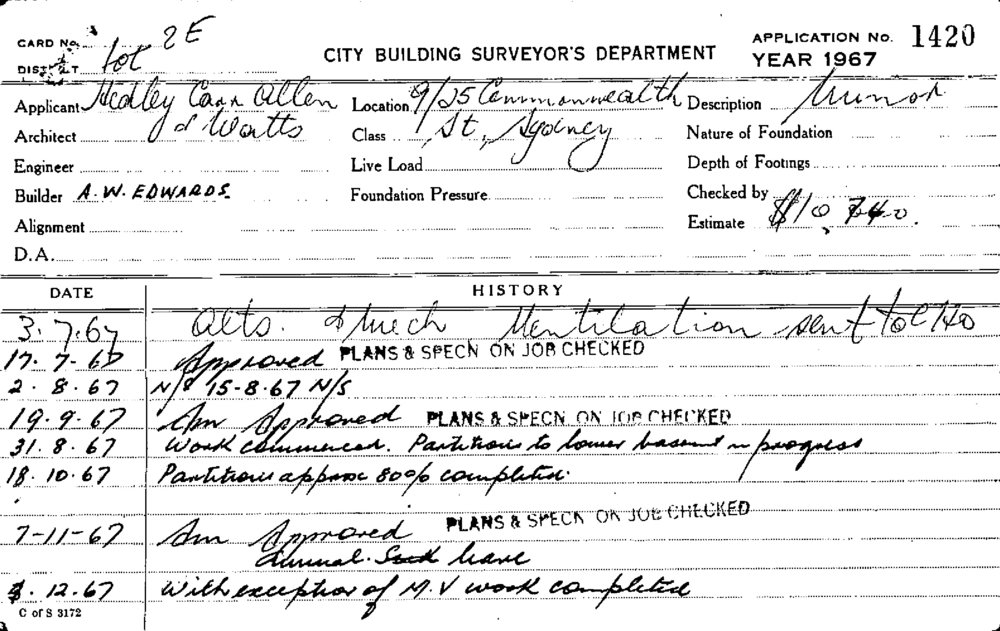 CARD No. 2E
DISTRICT tot
CITY BUILDING SURVEYOR'S DEPARTMENT
APPLICATION No. 1420
YEAR 1967
Applicant Hedley Carr Allen
Location 9/25 Commonwealth
Description Minor
Architect & Watts
Class St, Sydney
Nature of Foundation
Engineer
Live Load
Depth of Footings
Builder A.W. EDWARDS.
Foundation Pressure
Checked by
Alignment
Estimate $10,740.
D.A.
DATE HISTORY
3.7.67 Alts. & Mech Ventilation sent to C HO
17.7.67 Approved PLANS & SPECN ON JOB CHECKED
2.8.67 N/S 15-8.67 N/S
19.9.67 Am Approved PLANS & SPECN ON JOB CHECKED
31.8.67 Work commenced. Partitions to lower basemt in progress
18.10.67 Partitions approx 80% completed.
7-11-67 Am Approved PLANS & SPECN ON JOB CHECKED
Annual leave
12.67 With exception of M.V work completed
C of S 3172